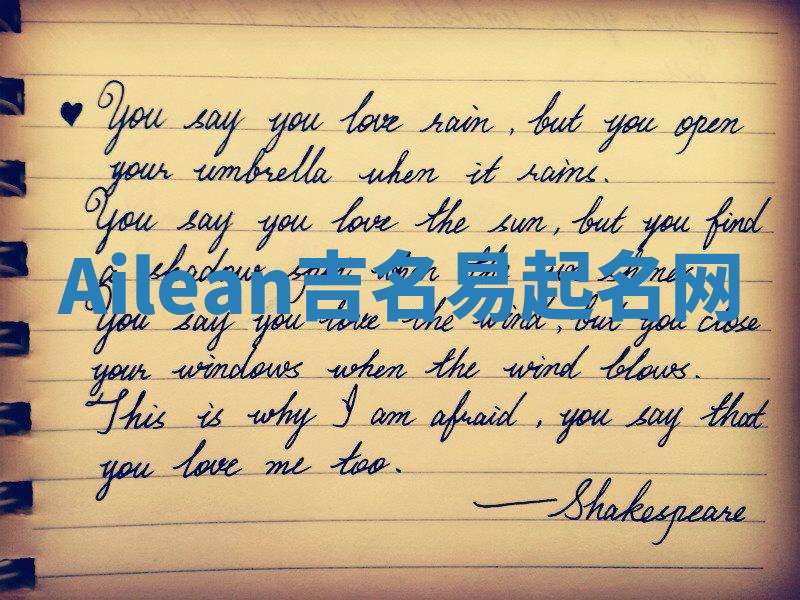 ♥ You say you love rain, but you open
your umbrella when it rains.
You say you love the sun, but you find
a shadow spot when the sun shines.
Ailean吉名易起名网
You say you love the wind, but you close
your windows when the wind blows.
This is why I am afraid, you say that
you love me too.
—Shakespeare